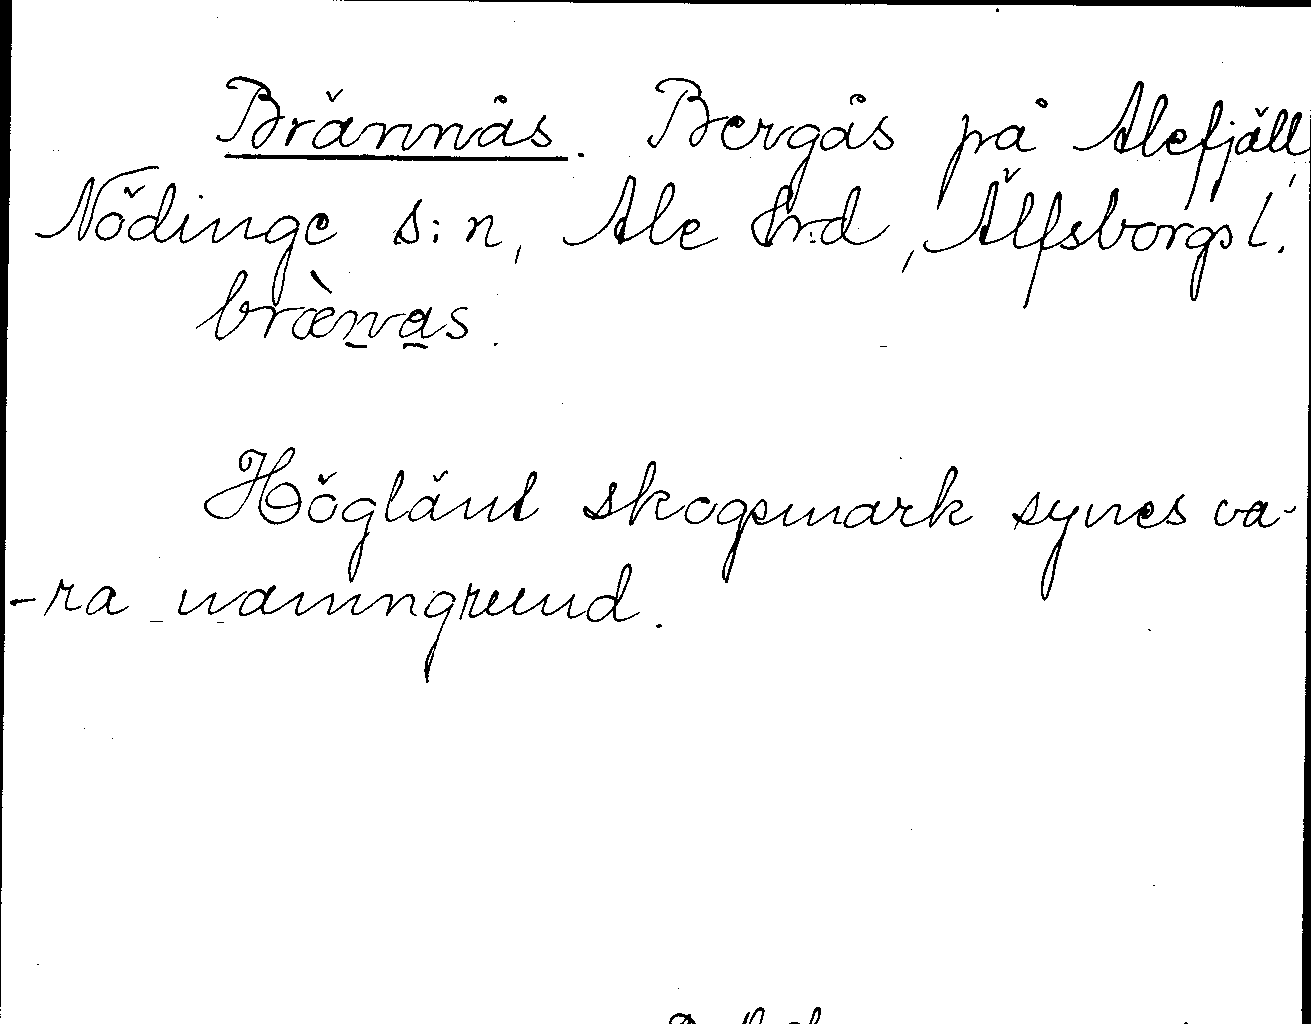 Brännås. Bergås på Alefjäll,
Nödinge s:n, Ale hrd, Älfsborgs l.
brænas.
Högländ skogsmark synes va-
-ra namngrund.